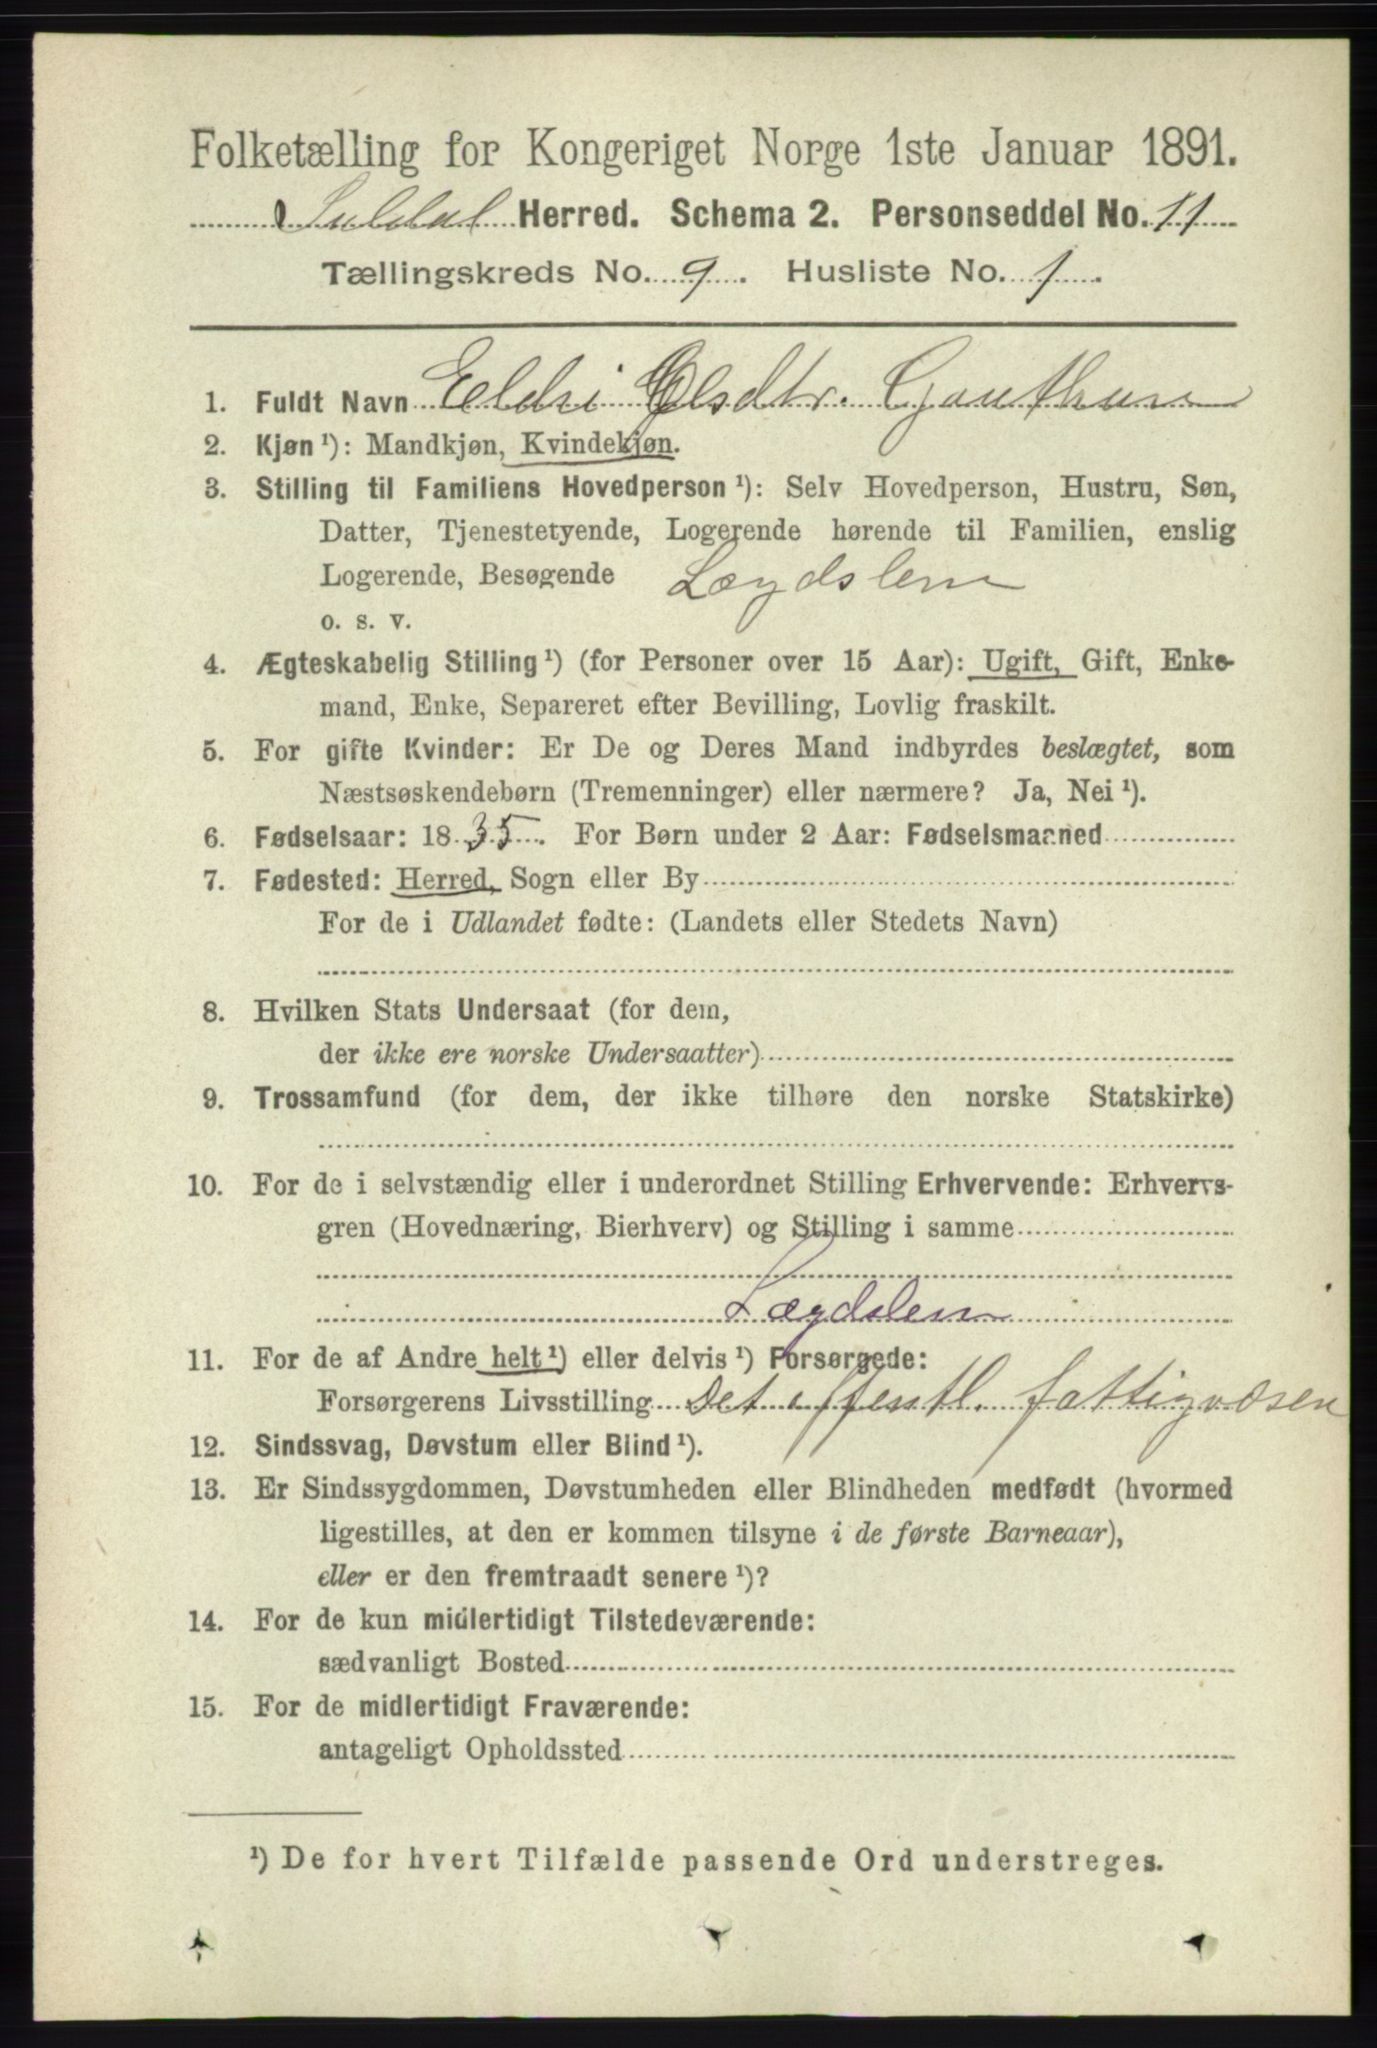 Folketælling for Kongeriget Norge 1ste Januar 1891.
Suldal Herred. Schema 2. Personseddel No. 11
Tællingskreds No. 9. Husliste No. 1.
1. Fuldt Navn Eldri Olsdtr. Gauthun
2. Kjøn ¹): Mandkjøn, Kvindekjøn.
3. Stilling til Familiens Hovedperson ¹): Selv Hovedperson, Hustru, Søn,
Datter, Tjenestetyende, Logerende hørende til Familien, enslig
Logerende, Besøgende Lægdslem
o. s. v.
4. Ægteskabelig Stilling ¹) (for Personer over 15 Aar): Ugift, Gift, Enke-
mand, Enke, Separeret efter Bevilling, Lovlig fraskilt.
5. For gifte Kvinder: Er De og Deres Mand indbyrdes beslægtet, som
Næstsøskendebørn (Tremenninger) eller nærmere? Ja, Nei ¹).
6. Fødselsaar: 1835. For Børn under 2 Aar: Fødselsmaaned
7. Fødested: Herred, Sogn eller By
For de i Udlandet fødte: (Landets eller Stedets Navn)
8. Hvilken Stats Undersaat (for dem,
der ikke ere norske Undersaatter)
9. Trossamfund (for dem, der ikke tilhøre den norske Statskirke)
10. For de i selvstændig eller i underordnet Stilling Erhvervende: Erhvervs-
gren (Hovednæring, Bierhverv) og Stilling i samme
Lægdslem
11. For de af Andre helt ¹) eller delvis ¹) Forsørgede:
Forsørgerens Livsstilling Det offentl. fattigvæsen
12. Sindssvag, Døvstum eller Blind ¹).
13. Er Sindssygdommen, Døvstumheden eller Blindheden medfødt (hvormed
ligestilles, at den er kommen tilsyne i de første Barneaar),
eller er den fremtraadt senere ¹)?
14. For de kun midlertidigt Tilstedeværende:
sædvanligt Bosted
15. For de midlertidigt Fraværende:
antageligt Opholdssted
¹) De for hvert Tilfælde passende Ord understreges.